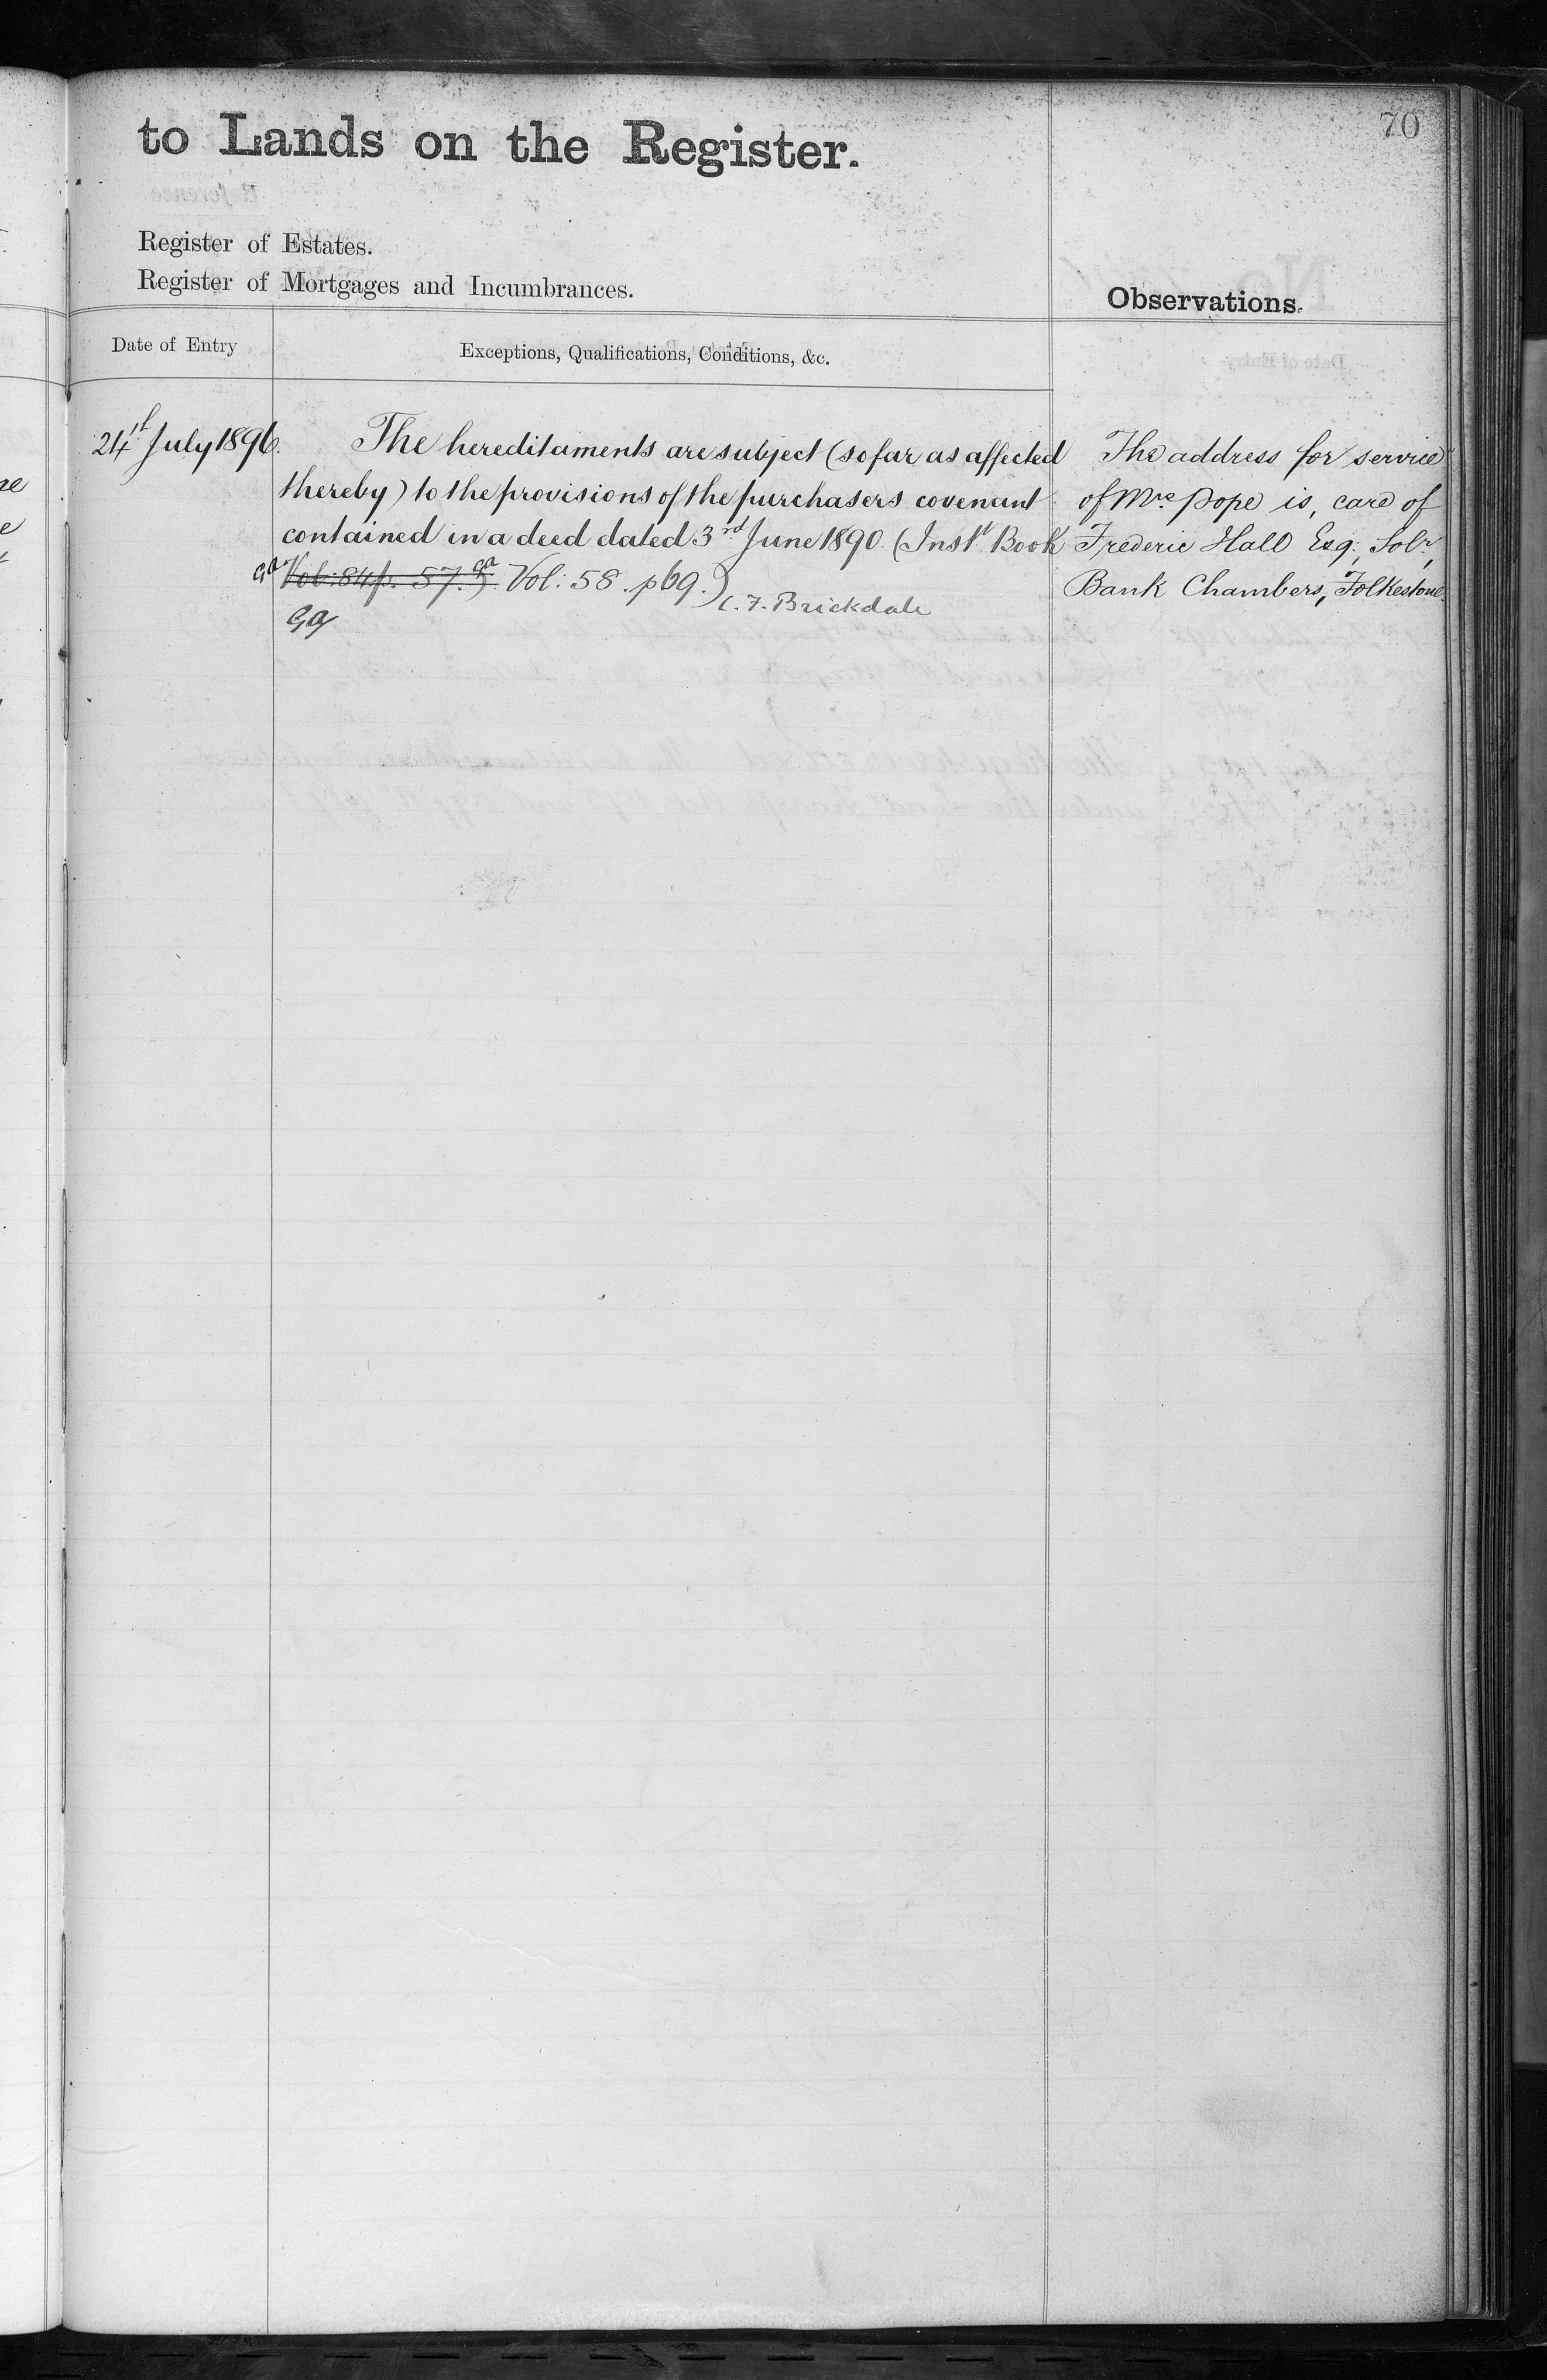 70
to Lands on the Register.
Register of Estates.
Register of Mortgages and Incumbrances.
Observations.
Date of Entry
Exceptions, Qualifications, Conditions, &c.
24th July 1896.
The hereditaments are subject (so far as affected
thereby) to the provisions of the purchasers covenant
contained in a deed dated 3rd June 1890. (Inst. Book
Vol: 84 p. 57.) Vol: 58. p69.)
C. F. Brickdale
The address for service
of Mrs. Pope is, care of
Frederic Hall Esq; Solr.,
Bank Chambers, Folkestone.